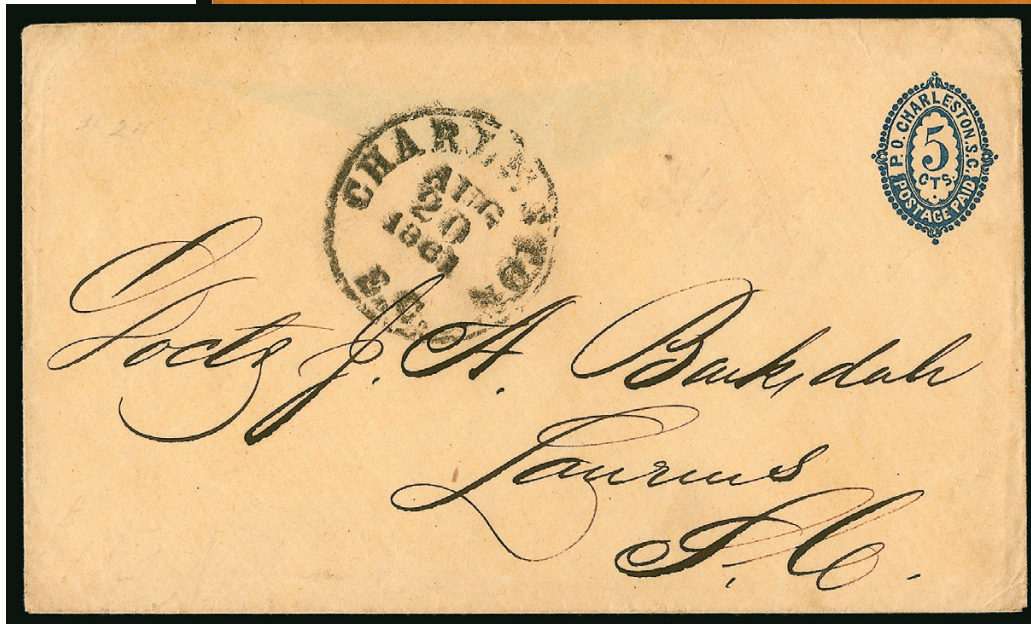 P.O. CHARLESTON. S.C.
5
CTS.
POSTAGE PAID
CHARLESTON
AUG
20
S.C.
J. A. Barksdale
Laurens
S. C.